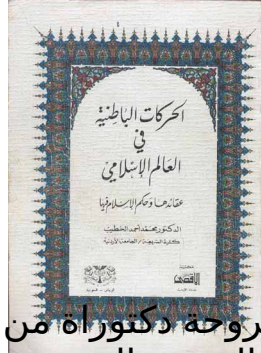 الحركات الباطنية
في
العالم الإسلامي
عقائدها وحكم الإسلام فيها
الدكتور محمد أحمد الخطيب
كلية الشريعة - الجامعة الأردنية
مكتبة
الأقصى
روحة دكتوراة من